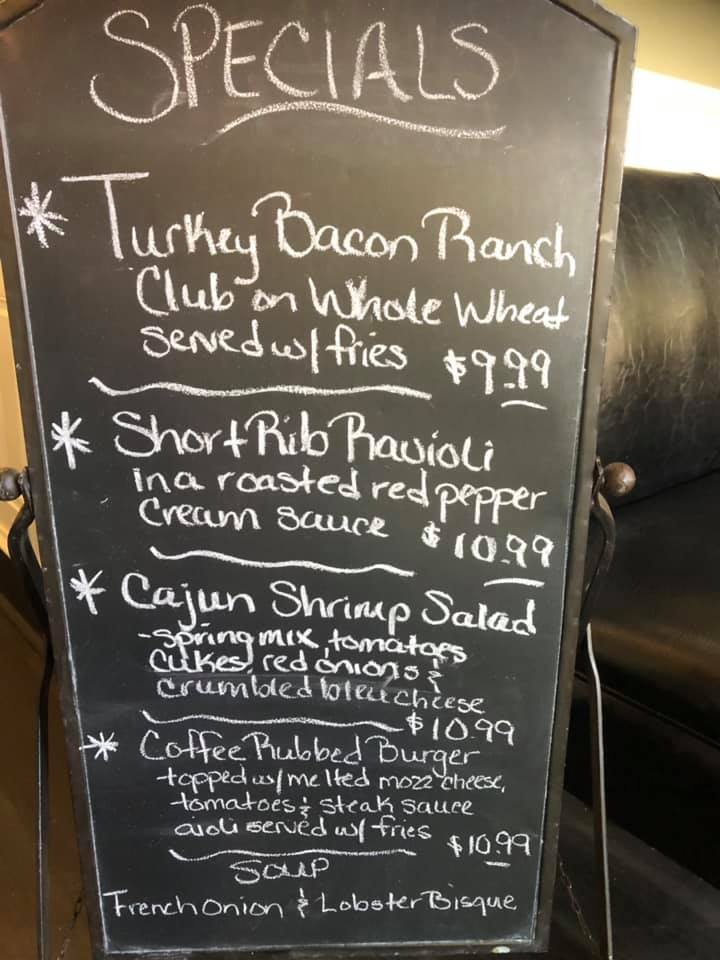 SPECIALS
* Turkey Bacon Ranch
Club on Whole Wheat
served w/ fries $9.99
* Short Rib Ravioli
in a roasted red pepper
Cream Sauce $10.99
* Cajun Shrimp Salad
-Spring mix, tomatoes
Cukes, red onions &
crumbled bleu cheese
$10.99
* Coffee Rubbed Burger
-topped w/ melted mozz cheese,
tomatoes & steak sauce
aioli served w/ fries $10.99
SOUP
French Onion & Lobster Bisque